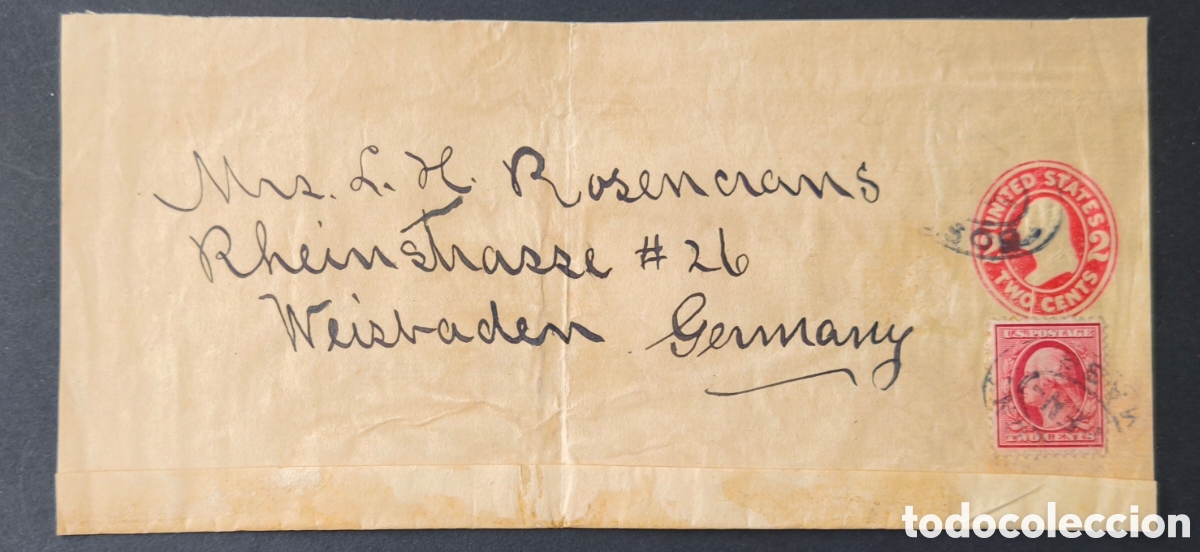 Mrs. L. H. Rosencrans
Rheinstrasse # 26
Weisbaden Germany
UNITED STATES
2
TWO CENTS
U.S. POSTAGE
TWO CENTS
todocoleccion